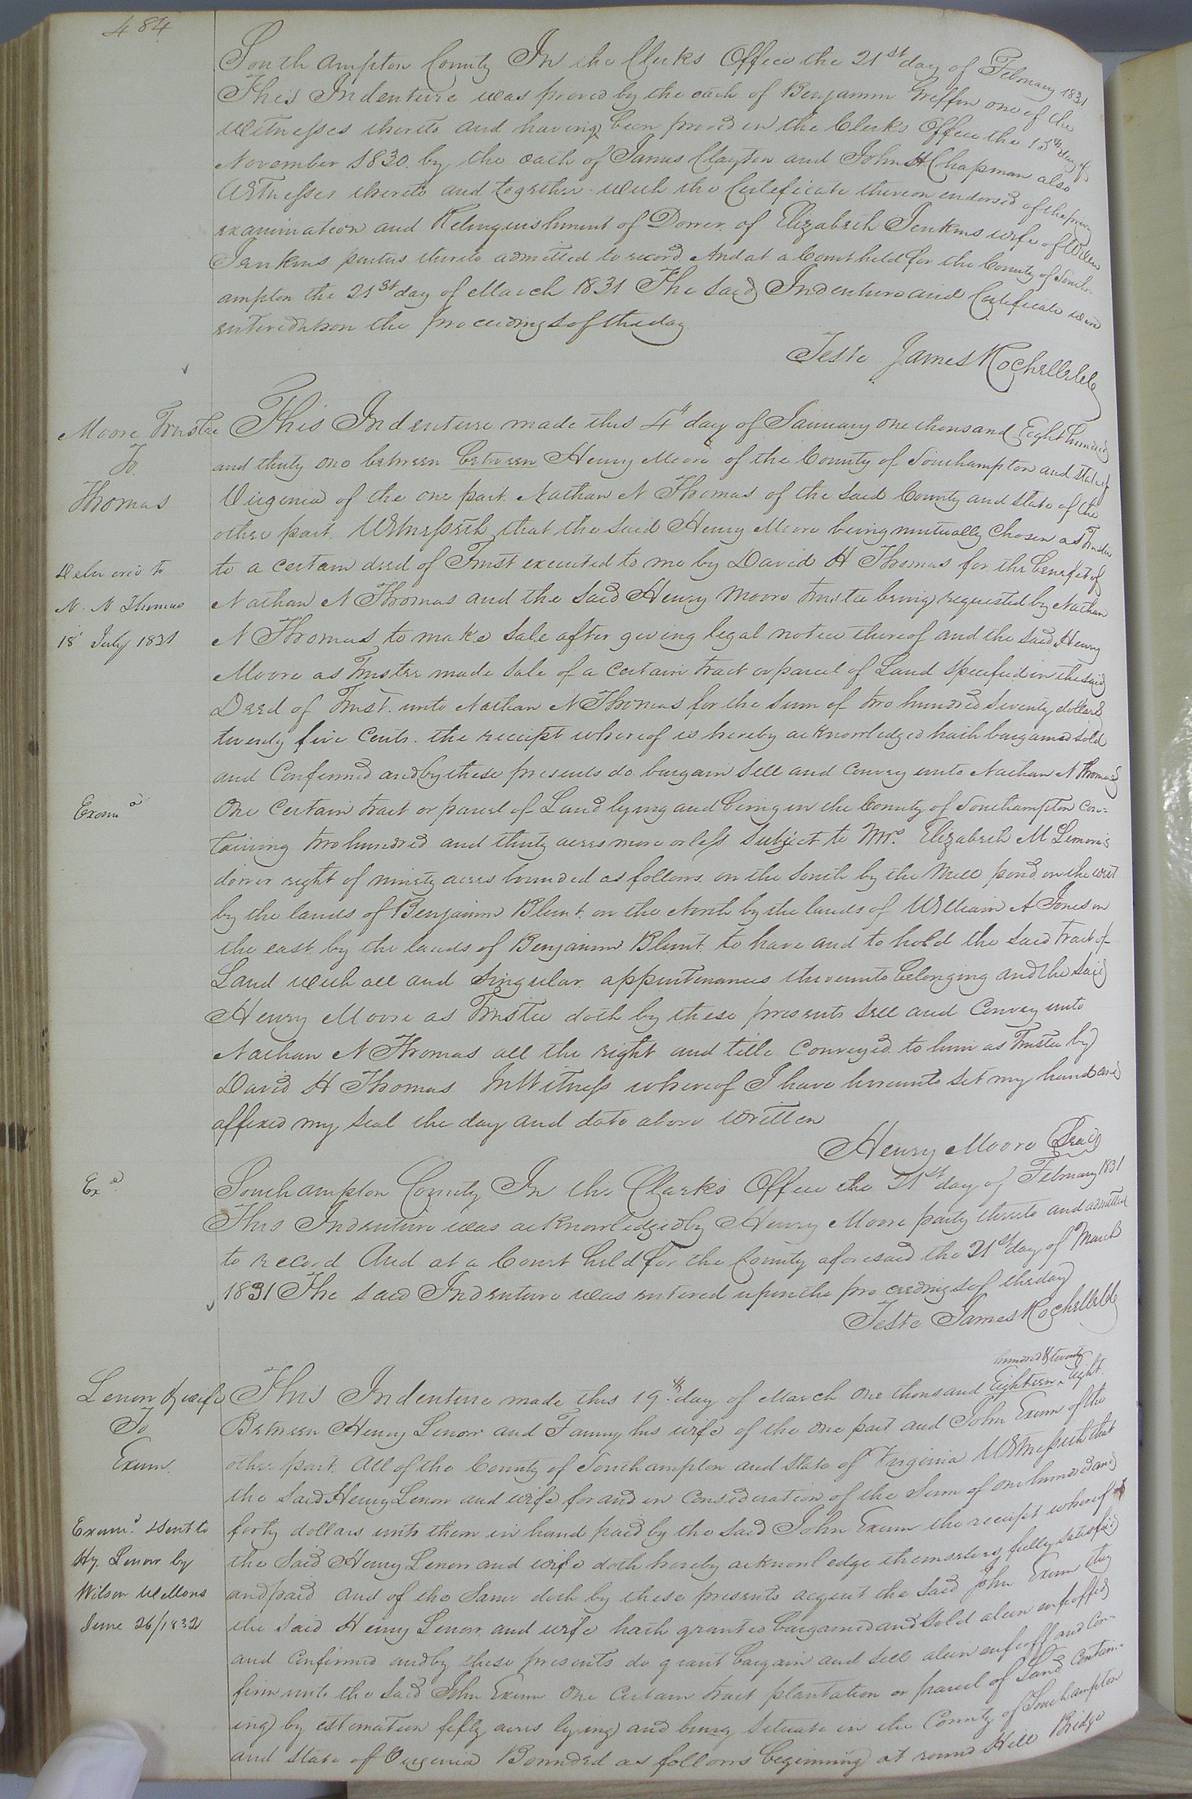 484
Southampton County In the Clerks Office the 21st day of February 1831
This Indenture was proved by the oath of Benjamin Griffin one of the
Witnesses thereto and having been proved in the Clerks Office the 15th day of
November 1830 by the oath of James Clayton and John H Chapman also
Witnesses thereto and together with the Certificate thereon endorsed of the privy
examination and Relinquishment of Dower of Elizabeth Jenkins wife of
Jenkins parties thereto admitted to record And at a Court held for the County of South-
ampton the 21st day of March 1831 The said Indenture and Certificate were
entered upon the proceedings of the day
Teste James Rochelle Clk
Moore Trustee
To
Thomas
Delivered to
N. N Thomas
18th July 1831
Examd
This Indenture made this 4th day of January one thousand Eight hundred
and thirty one between between Henry Moore of the County of Southampton and State of
Virginia of the one part Nathan N Thomas of the said County and State of the
other part Witnesseth that the said Henry Moore being mutually chosen as Trustee
to a certain deed of Trust executed to me by David H Thomas for the benefit of
Nathan N Thomas and the said Henry Moore trustee being requested by Nathan
N Thomas to make sale after giving legal notice thereof and the said Henry
Moore as Trustee made sale of a certain tract or parcel of Land specified in the said
Deed of Trust unto Nathan N Thomas for the sum of two hundred seventy dollars
twenty five cents the receipt whereof is hereby acknowledged hath bargained sold
and Confirmed and by these presents do bargain sell and convey unto Nathan N Thomas
One certain tract or parcel of Land lying and being in the County of Southampton con-
taining two hundred and thirty acres more or less subject to Mrs. Elizabeth M Simmons
dower right of ninety acres bounded as follows on the South by the Mill pond on the west
by the lands of Benjamin Blunt on the North by the lands of William A Jones on
the east by the lands of Benjamin Blunt to have and to hold the said tract of
Land with all and singular appurtenances thereunto belonging and the said
Henry Moore as Trustee doth by these presents sell and Convey unto
Nathan N Thomas all the right and title conveyed to him as Trustee by
David H Thomas In Witness whereof I have hereunto set my hand and
affixed my seal the day and date above written
Henry Moore Seal
Exd
Southampton County In the Clerk's Office the 21st day of February 1831
This Indenture was acknowledged by Henry Moore party thereto and admitted
to record And at a Court held for the County aforesaid the 21st day of March
1831 The said Indenture was entered upon the proceedings of the day
Teste James Rochelle Clk
Lenow & wife
To
Exum
Examd. & sent to
Hy Lenow by
Wilson Wellons
June 26/1832
hundred & twenty
This Indenture made this 19th day of March one thousand Eighteen eight
Between Henry Lenow and Fanny his wife of the one part and John Exum of the
other part All of the County of Southampton and State of Virginia Witnesseth that
the said Henry Lenow and wife for and in Consideration of the sum of one hundred and
forty dollars unto them in hand paid by the said John Exum the receipt whereof
the said Henry Lenow and wife doth hereby acknowledge themselves fully satisfied
and paid and of the same doth by these presents acquit the said John Exum they
the said Henry Lenow and wife hath granted bargained and sold alien enfeoffed
and Confirmed and by these presents do grant bargain and sell alien enfeoff and Con-
firm unto the said John Exum One Certain tract plantation or parcel of Land contain-
ing by estimation fifty acres lying and being situate in the County of Southampton
and State of Virginia Bounded as follows beginning at round Hill Bridge